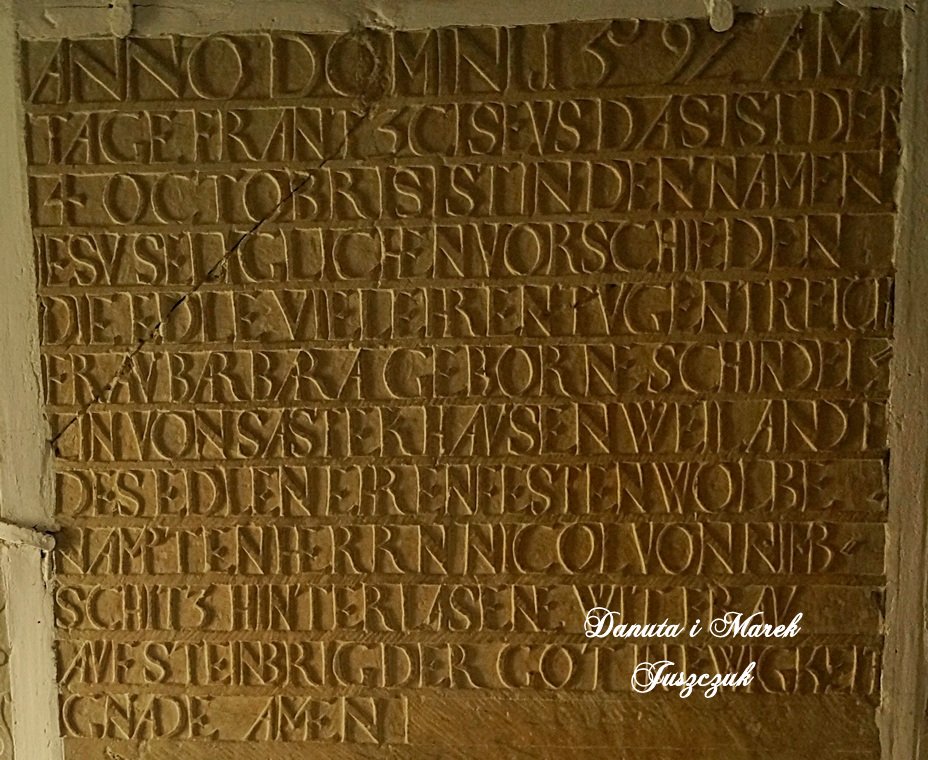 ANNO DOMINI 1597 AM
TAGE FRANT3CISEVS DAS IST DER
4 OCTOBRIS IST IN DEN NAMEN
IESV SELIGLICHEN VORSCHIEDEN
DIE EDLE VIELEHRENTVGENTREICH
FRAV BARBARA GEBORNE SCHINDEL
IN VON SASTERHAVSEN WEILANDT
DES EDLEN EHRENFESTEN WOLBE
NAMPTEN HERRN NICOL VON NIEB-
SCHIT3 HINTERLASENE WITFRAV
AVF STENBRIG DER GOT
GNADE AMEN
Danuta i Marek
Juszczuk